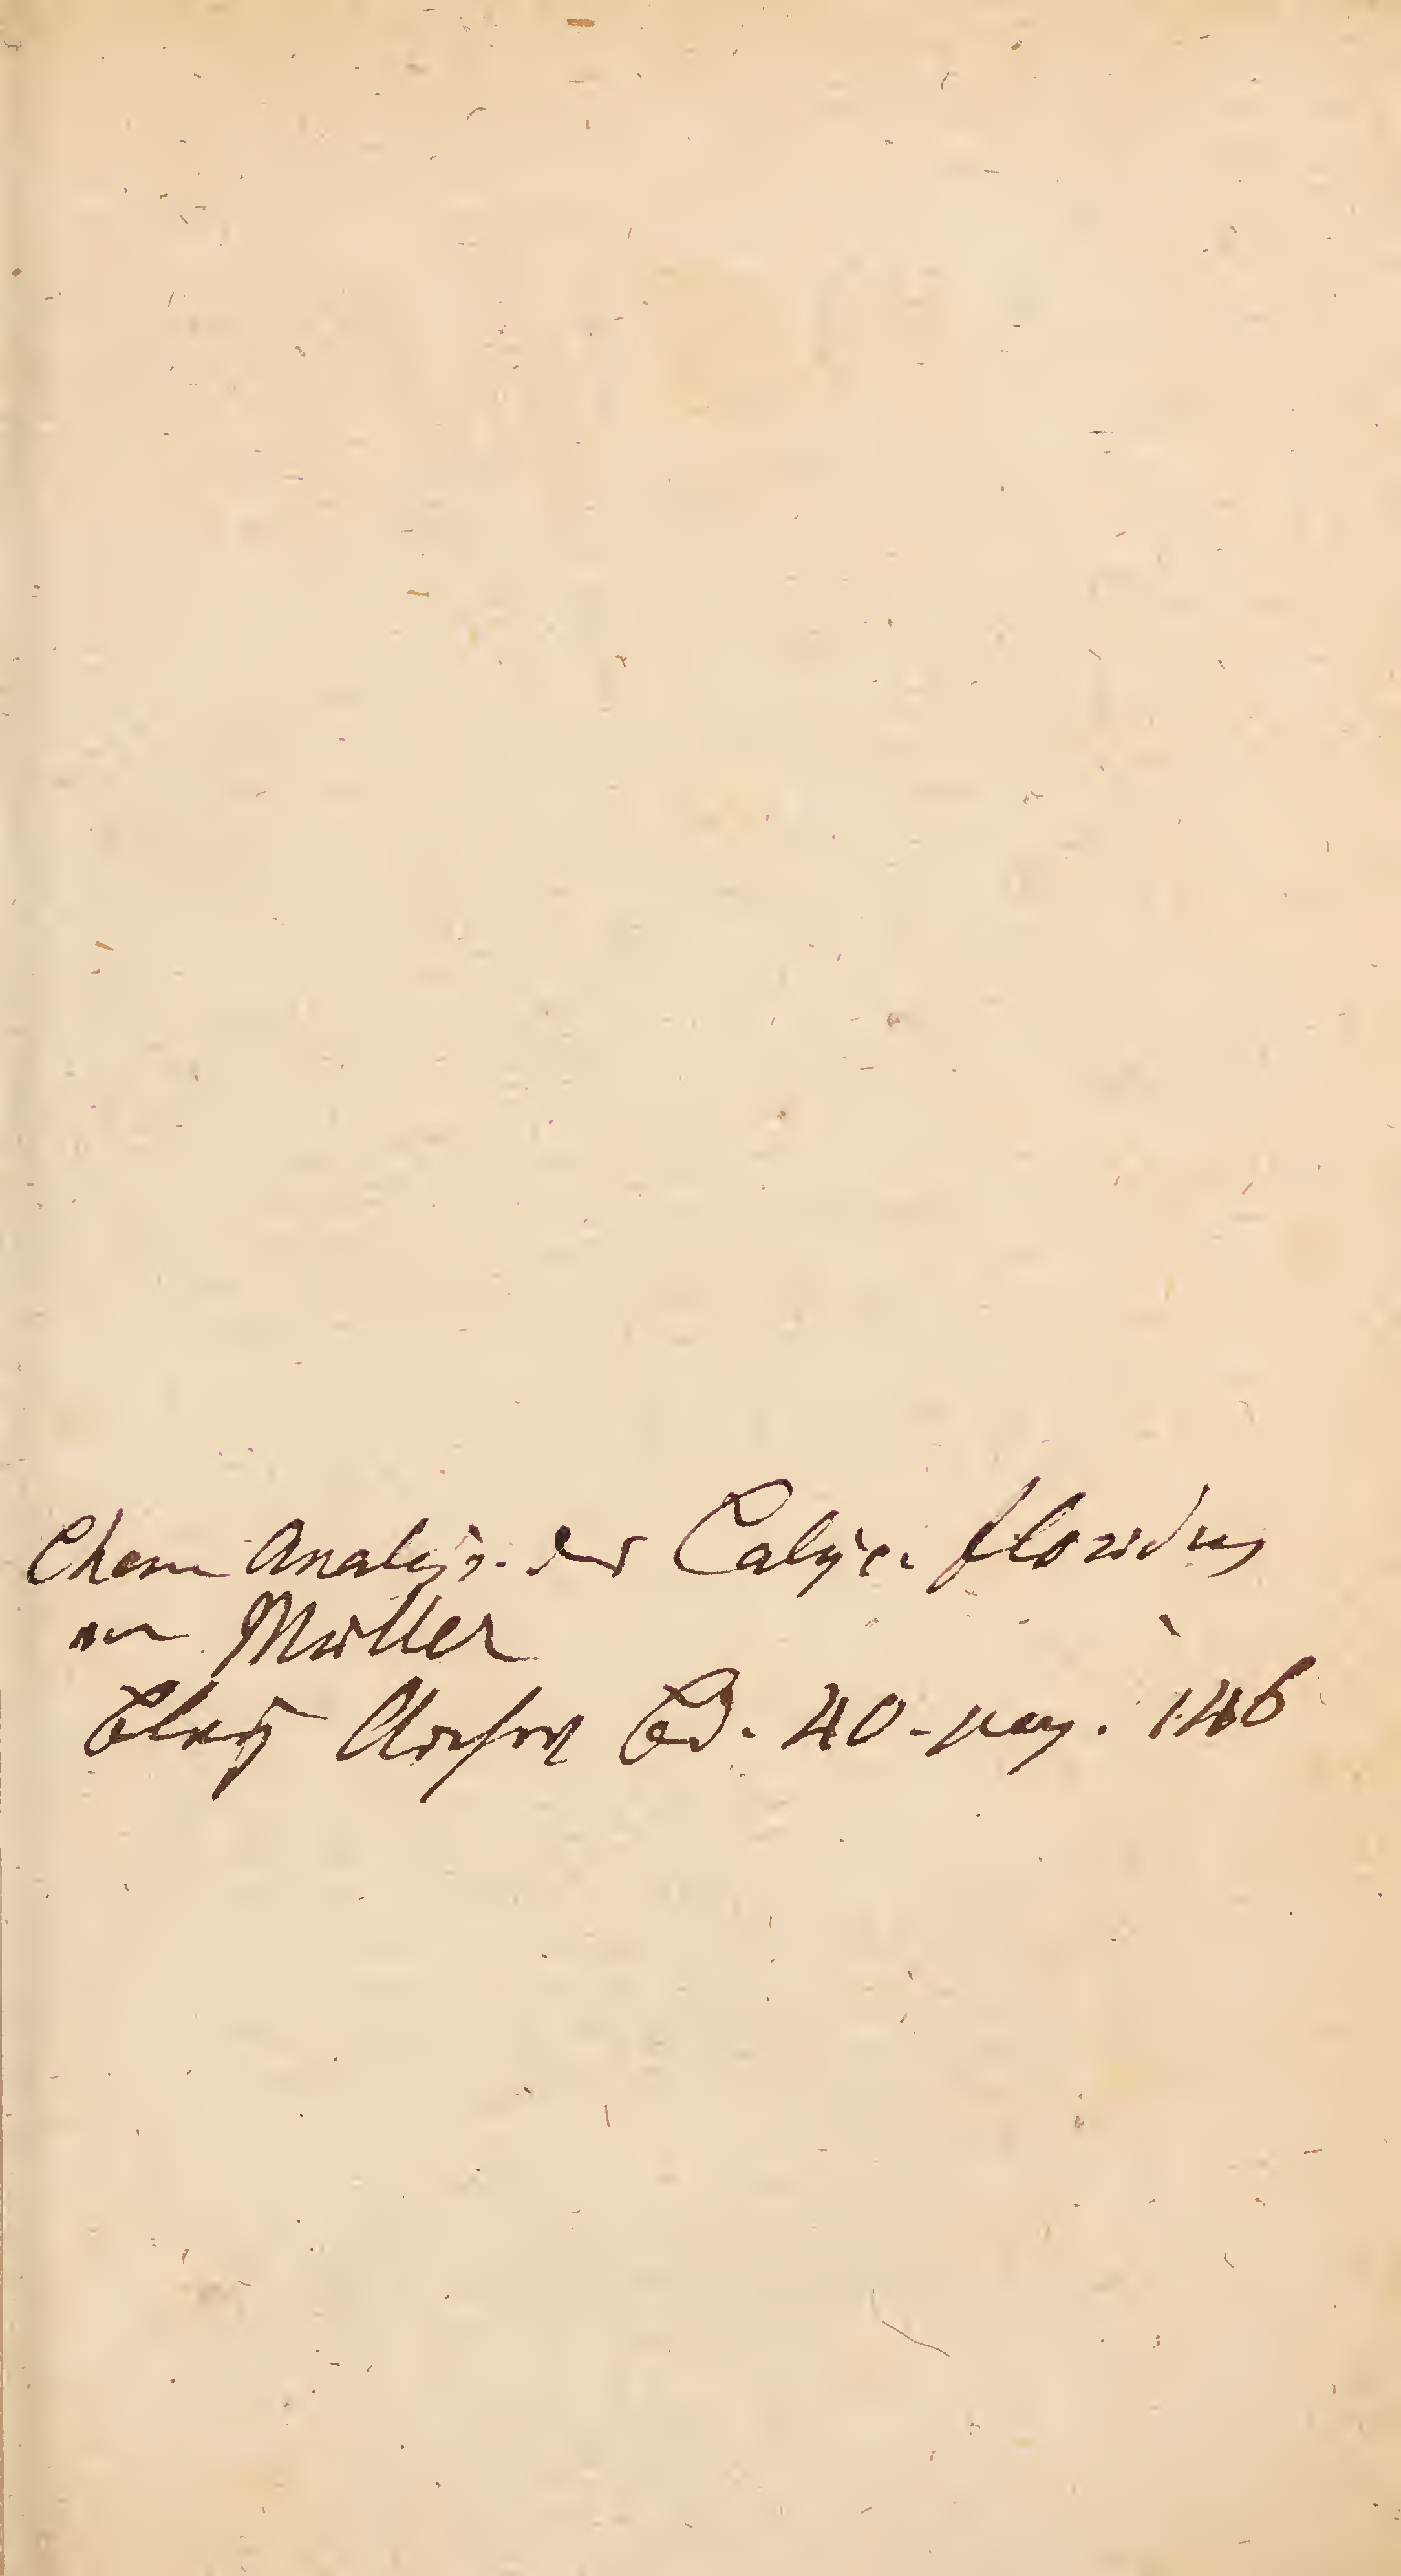 Chem Analys. der Calyc. floridus
von Müller
Archiv Bd. 40 - pag. 146